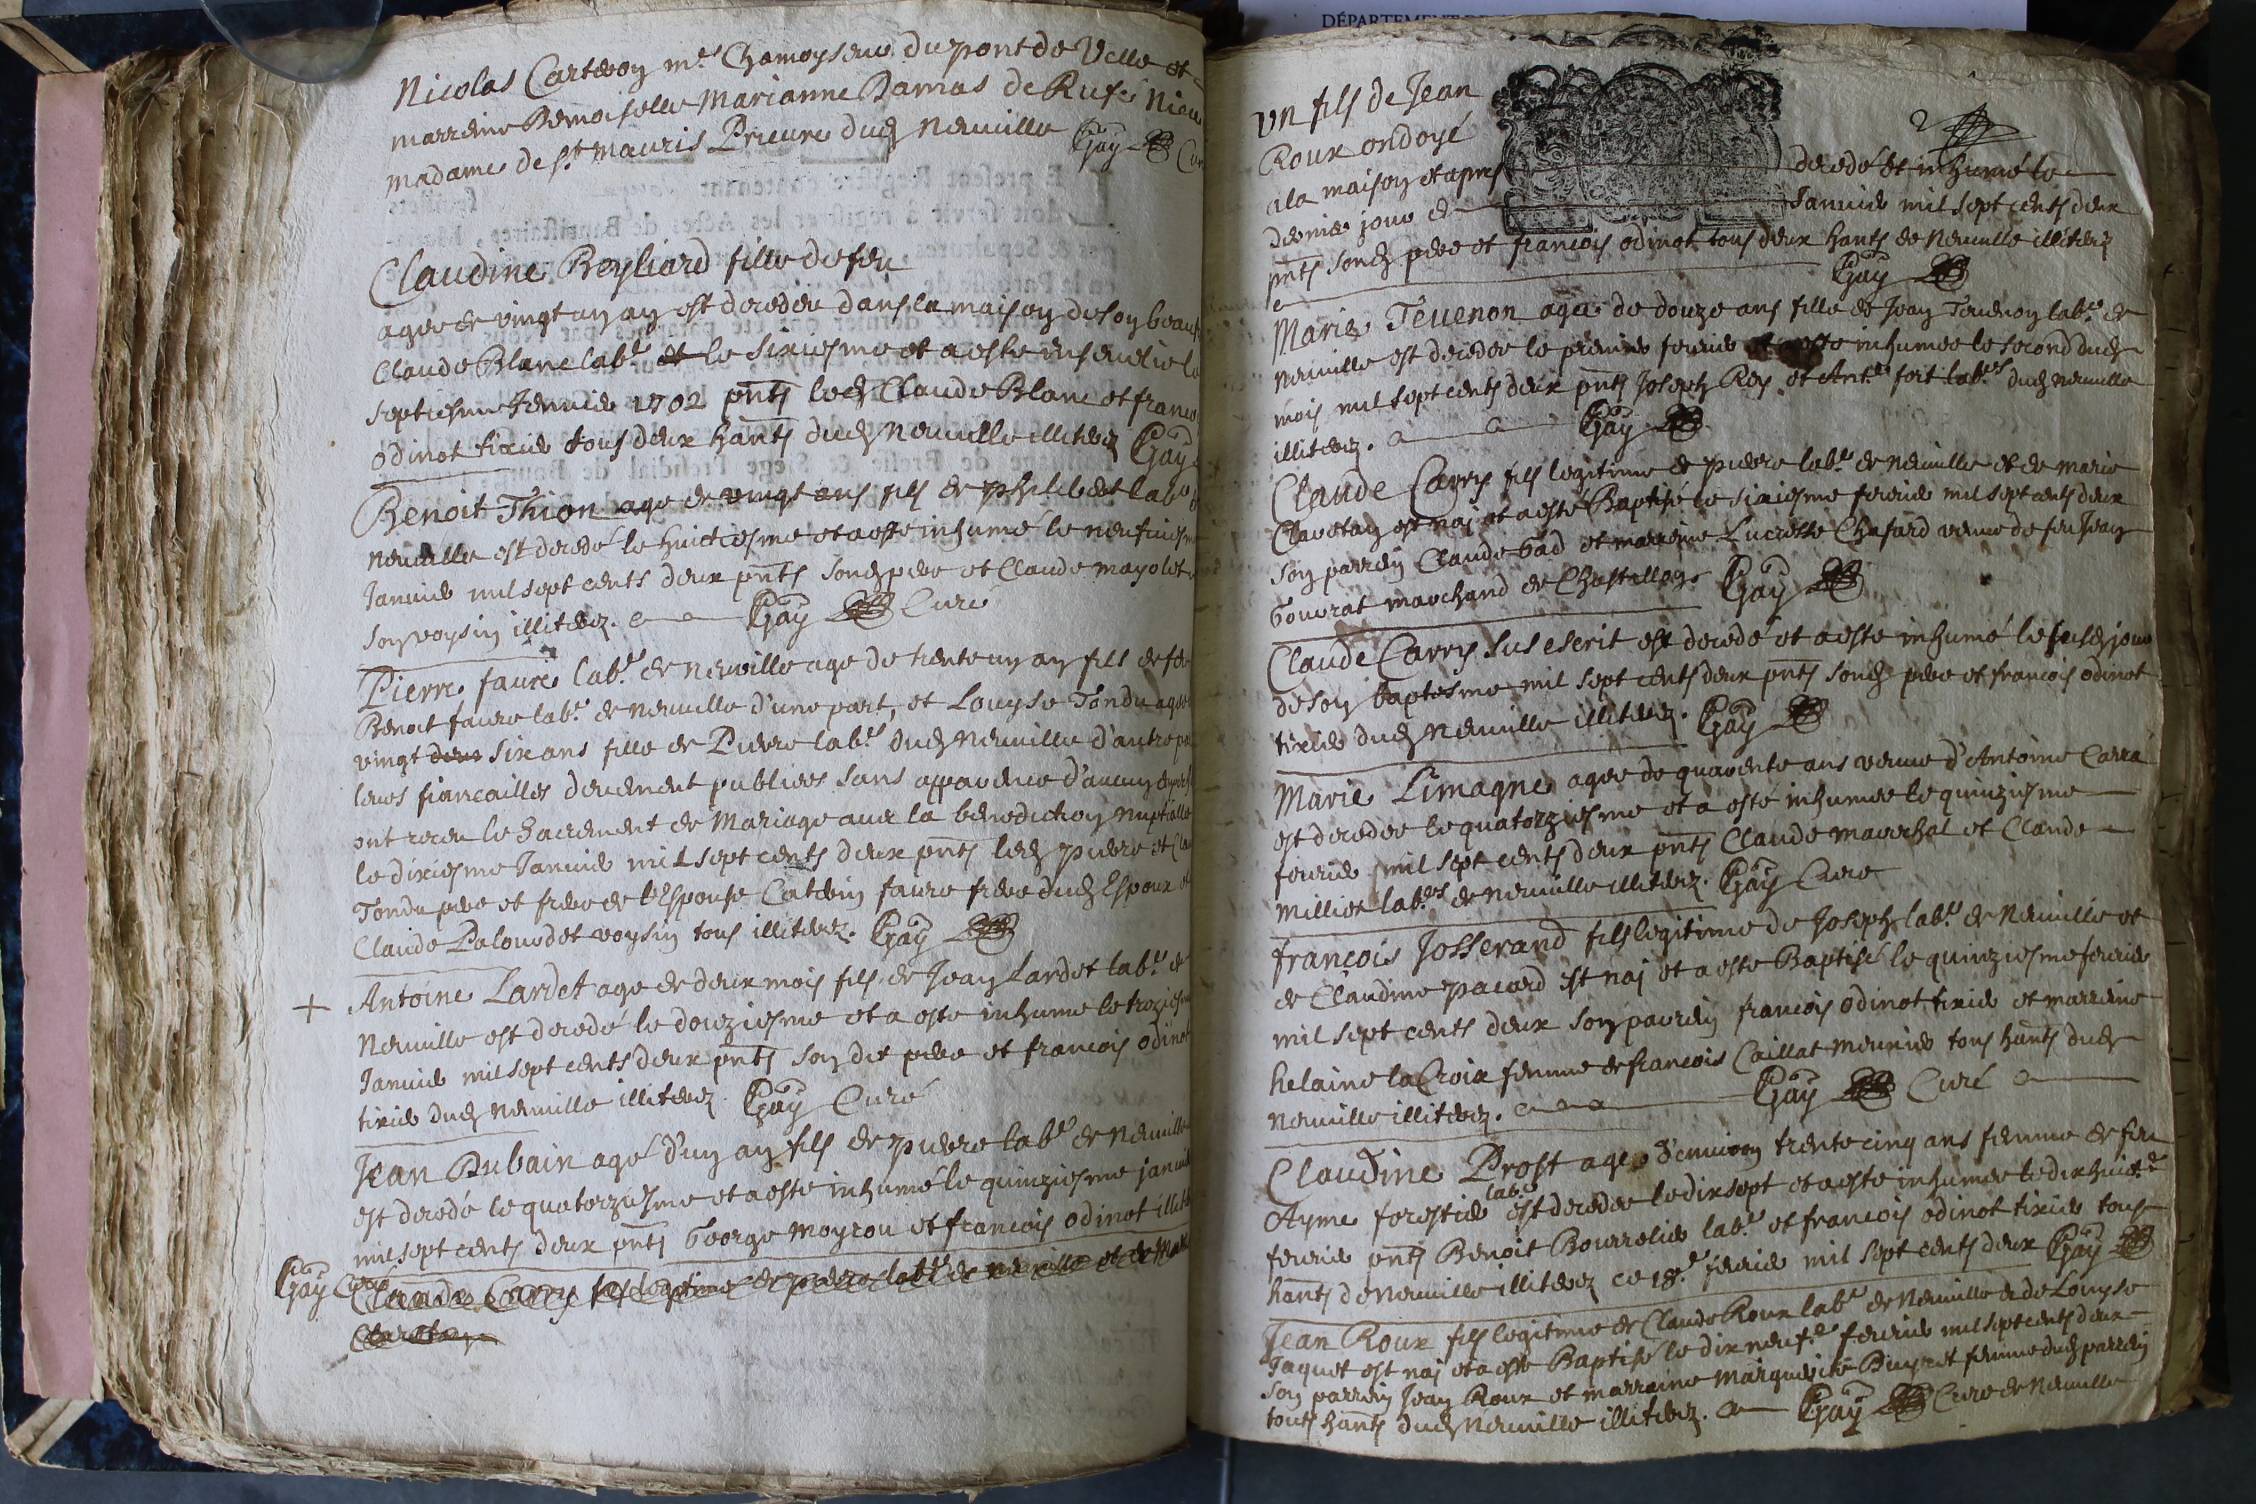 Nicolas Carteron m.e Chamoyseur du pont de Velle et
marreine Demoiselle Marianne Damas de Rufé Niece
madame de st Mauris Prieure dud Neuuille Gay Cur
Claudine Reyliard fille de feu
agee de vingt un an est decedée dans la maison de son beau
Claude Blanc lab.r et le sixiesme et a esté inseuelie le
septiesme Januier 1702 pnts led Claude Blanc et franco
odinot tixier tous deux hants dud Neuuille illiterez Gay
Benoit Thion age de vingt ans fils de Philibert lab.r d
Neuuille est decedé le huictiesme et a esté inhumé le neufuiesm
Januier mil sept cents deux pnts sond pere et Claude mayolet
son voysin illiterez. Gay Curé
Pierre faure lab.r de Neuuille age de trente un an fils de feu
Benoit faure lab.r de Neuuille d'une part, et Louyse Tondu agee
vingt deux six ans fille de Pierre lab.r dud Neuuille d'autre pa
leurs fiancailles deuement publiees sans apparence d'aucun
ont receu le Sacrement de Mariage auec la benediction Nuptialle
le dixiesme Januier mil sept cents deux pnts led pierre et Cla
Tondu pere et frere de l'Espouse Caterin faure frere dud Espoux et
Claude Palourdet voysin tous illiterez. Gay
+ Antoine Lardet age de deux mois fils de Jean Lardet lab.r de
Neuuille est decedé le douziesme et a esté inhumé le treziesm
Januier mil sept cents deux pnts son dit pere et francois odinot
tixier dud Neuuille illiterez Gay Curé
Jean Dubain agé d'un an fils de pierre lab.r de Neuuille
est decedé le quatorziesme et a esté inhumé le quinziesme januier
mil sept cents deux pnts George Moyrou et francois odinot illite
Gay Curé
Claude Carry fils legitime de pierre lab.r de neuuille et de Marie
Clauetan
DÉPARTEMENT
2
vn fils de Jean
Roux ondoyé
a la maison et apres decedé et inhumé le
dernier jour de Januier mil sept cents deux
pnts sond pere et francois odinot tous deux hants de Neuuille illiterez
Gay
Marie Teuenon agee de douze ans fille de Jean Teuenon lab.r de
Neuuille est decedee le premier feurier et a esté inhumee le second dud
mois mil sept cents deux pnts Joseph Rey et Ant.e fort lab.rs dud Neuuille
illiterez. Gay
Claude Carry fils legitime de pierre lab.r de Neuuille et de marie
Clauetan est nai et a esté Baptisé le sixiesme feurier mil sept cents deux
son parrein Claude Gad et marreine Lucresse Chafard veuue de feu Jean
Gouurat marchand de Chastillon Gay
Claude Carry sus escrit est decedé et a esté inhumé le susd jour
de son baptesme mil sept cents deux pnts sond pere et francois odinot
tixier dud Neuuille illiterez. Gay
Marie Limagne agee de quarente ans veuue d'Antoine Carra
est decedee le quatorziesme et a esté inhumee le quinziesme
feurier mil sept cents deux pnts Claude mareschal et Claude
Milliet lab.rs de Neuuille illiterez. Gay Curé
francois Josserand fils legitime de Joseph lab.r de Neuuille et
de Claudine pacard est nai et a esté Baptisé le quinziesme feurier
mil sept cents deux son parrein francois odinot tixier et marreine
helaine la Croix femme de francois Caillat meunier tous hants dud
Neuuille illiterez. Gay Curé
Claudine Prost agee d'enuiron trente cinq ans femme de feu
Ayme forestier lab.r est decedee le dix sept et a esté inhumee le dix huict.e
feurier pnts Benoit Bourrelier lab.r et francois odinot tixier tous
hants de Neuuille illiterez ce 18.e feurier mil sept cents deux Gay
Jean Roux fils legitime de Claude Roux lab.r de Neuuille et de Louyse
Jaquet est nai et a esté Baptisé le dix neuf.e feurier mil sept cents deux
son parrein Jean Roux et marraine marguerite Buyret femme dud parrein
touts hants dud Neuuille illiterez. Gay Curé de Neuuille